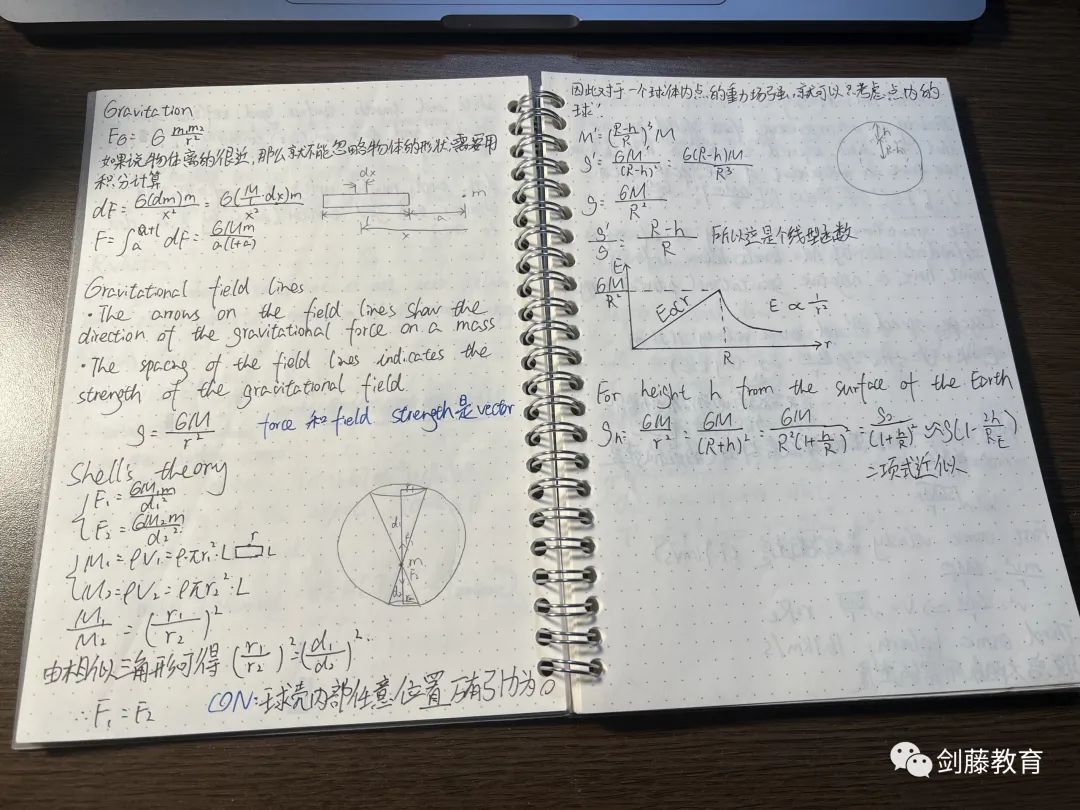 Gravitation
F_G = G m₁m₂/r²
如果说物体离的很近,那么就不能忽略物体的形状,需要用
积分计算
dF = G(dm)m/x² = G(M/l·dx)m/x²
F = ∫ₐ^(a+l) dF = GMm/a(l+a)
dx
m
l
a
x
Gravitational field lines
· The arrows on the field lines show the
direction of the gravitational force on a mass
· The spacing of the field lines indicates the
strength of the gravitational field
g = GM/r²
force 和 field strength是vector
Shell's theory
F₁ = GM₁m/d₁²
F₂ = GM₂m/d₂²
M₁ = ρV₁ = ρ·πr₁²·L
r
L
M₂ = ρV₂ = ρπr₂²·L
M₁/M₂ = (r₁/r₂)²
由相似三角形可得 (r₁/r₂)² = (d₁/d₂)²
∴ F₁ = F₂
CON:球壳内部任意位置万有引力为0
d₁
m
F₂
d₂
因此对于一个球体内点的重力场强,就可以只考虑点内的
球!
M' = (R-h/R)³M
g' = GM'/(R-h)² = G(R-h)M/R³
g = GM/R²
g'/g = R-h/R 所以这是个线型函数
h
R-h
E
GM/R²
E∝r
E ∝ 1/r²
R
r
For height h from the surface of the Earth
gₕ = GM/r² = GM/(R+h)² = GM/R²(1+h/R)² = g/(1+h/R)² ≈ g(1-2h/R_E)
二项式近似
剑藤教育